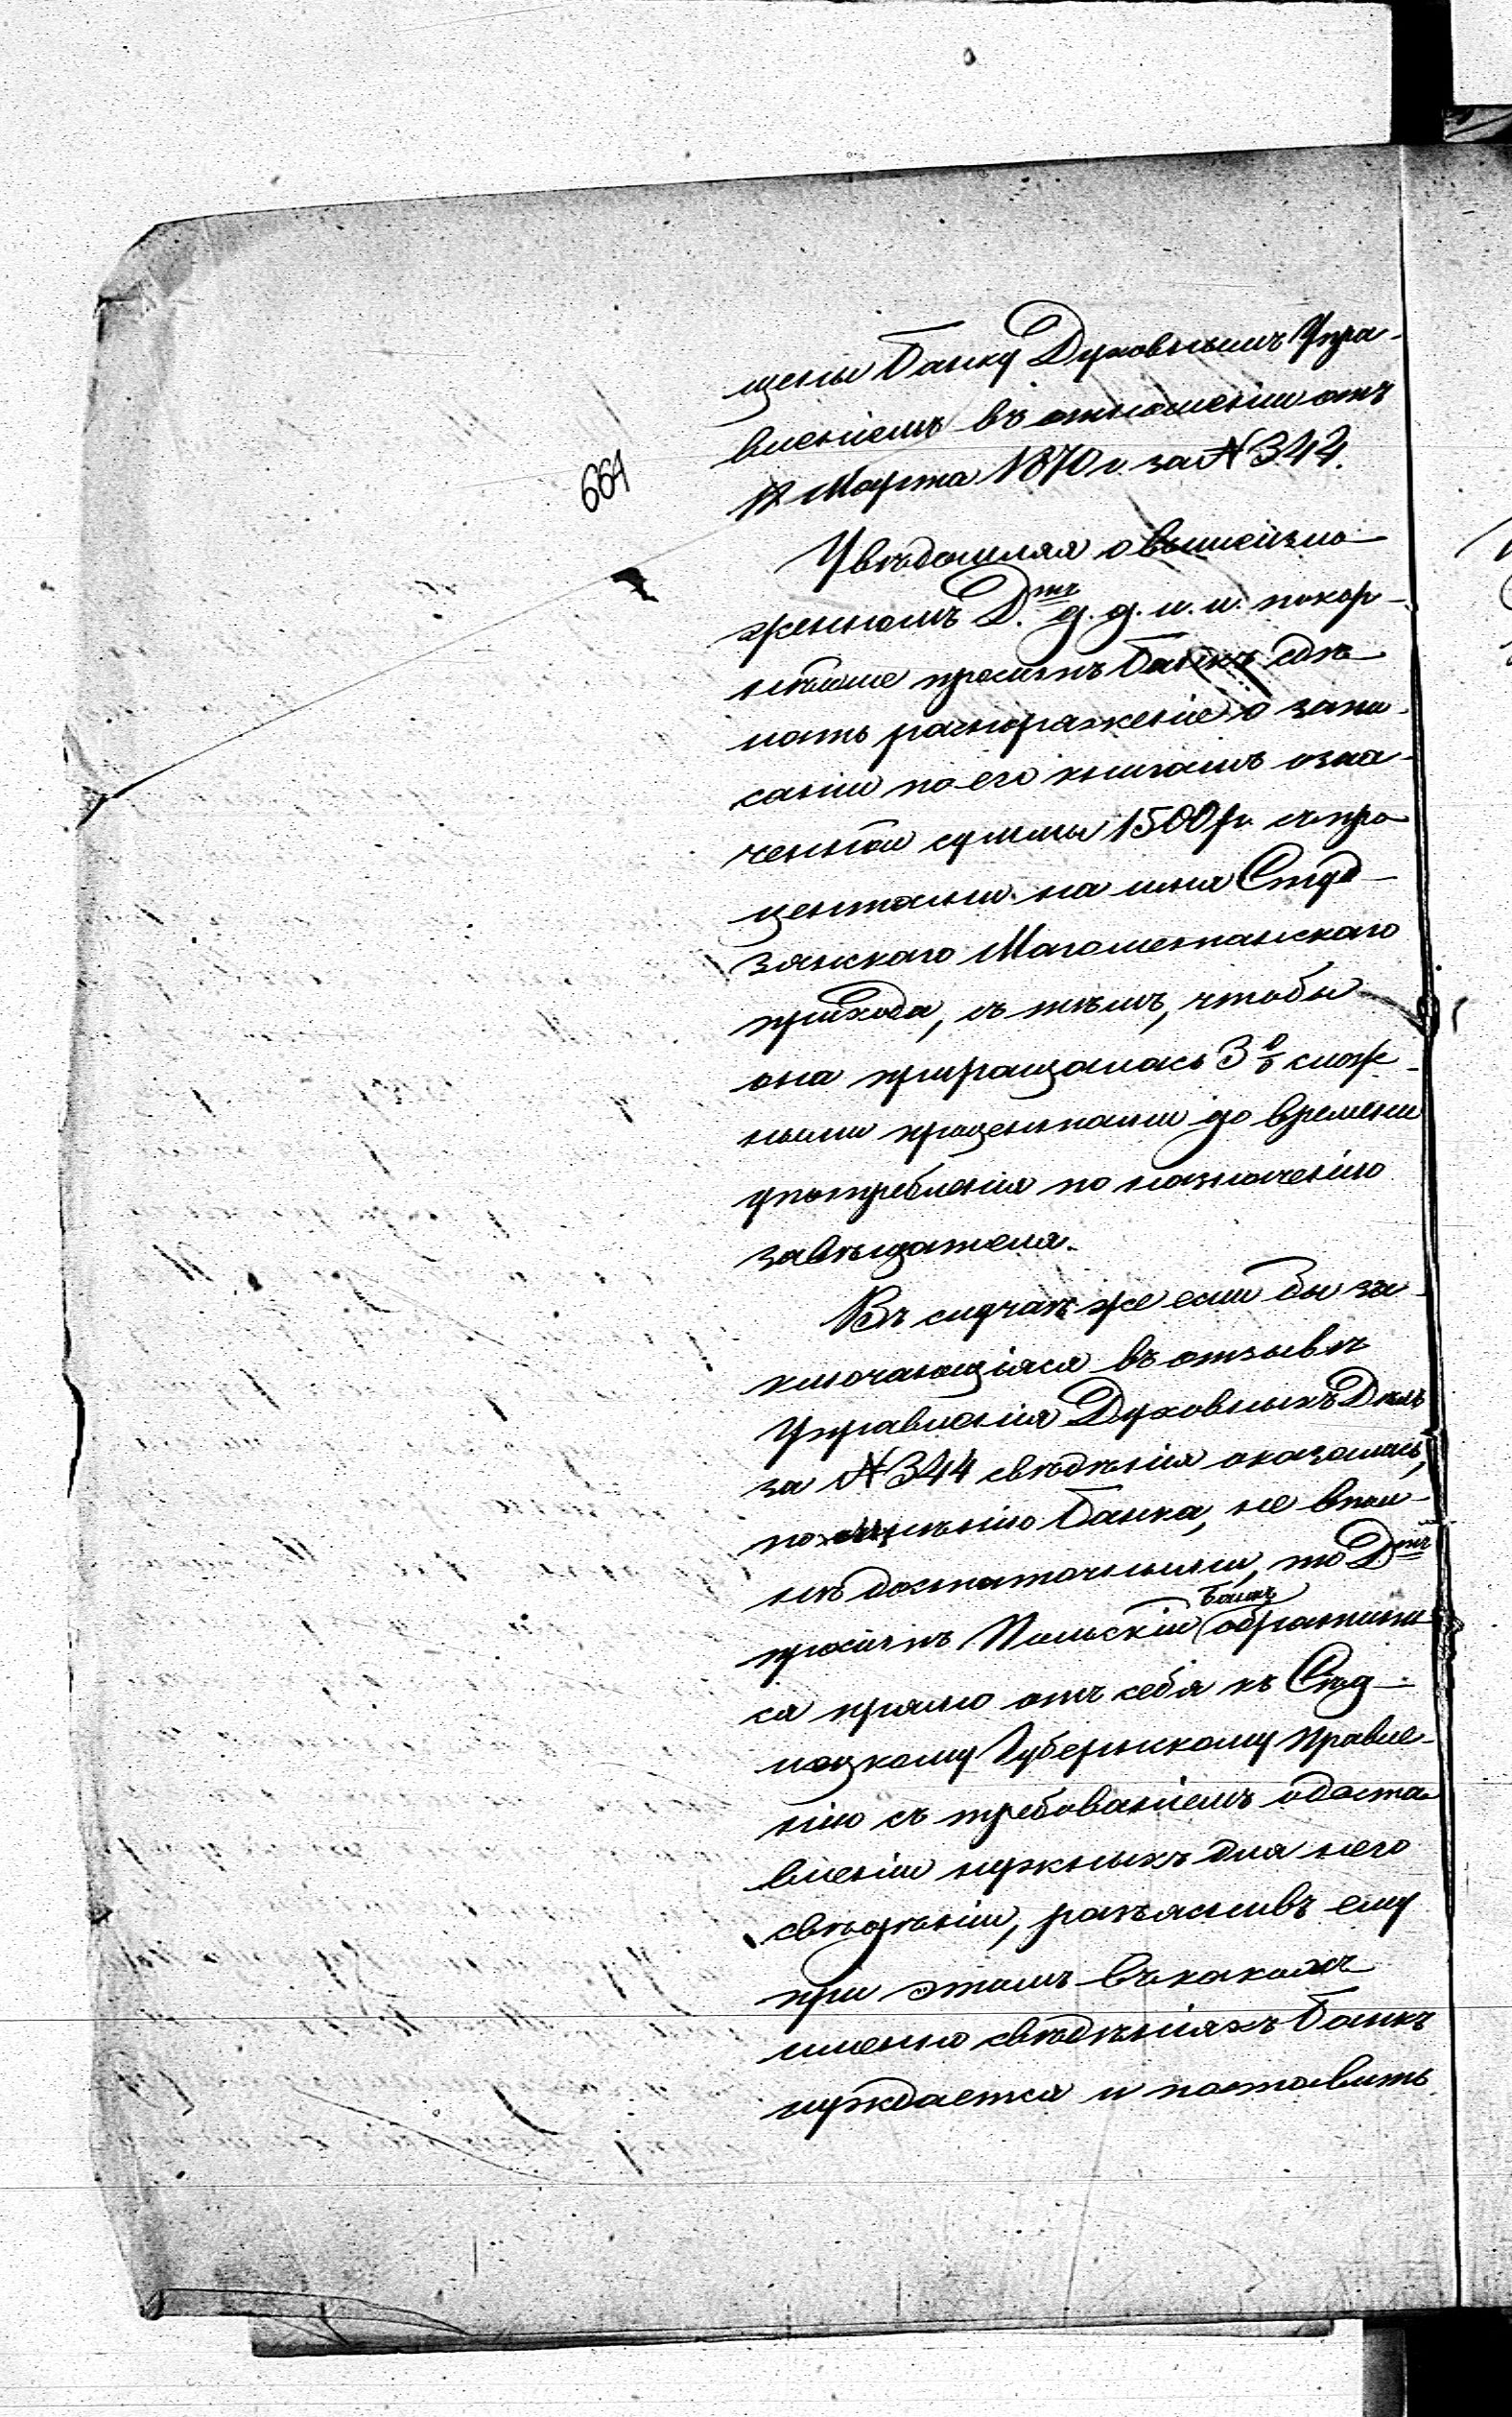 щены Банку Духовнымъ Упра-
вленіемъ въ отношеніи отъ
12 Марта 1870 г. за № 344.
664
Увѣдомляя о вышеизло-
женномъ Д.тъ д. д. и. и. покор-
нѣйше проситъ Банкъ сдѣ-
лать распоряженіе о запи-
саніи по его книгамъ озна-
ченной суммы 1500 р. съ про-
центами на имя Студ-
зянскаго Магометанскаго
прихода, съ тѣмъ, чтобы
она приращалась 3% слож-
ными процентами до времени
употребленія по назначенію
завѣщателя.
Въ случаѣ же если бы за-
ключающіяся въ отзывѣ
Управленія Духовныхъ Дѣлъ
за № 344 свѣдѣнія оказались,
по мнѣнію Банка, не впол-
нѣ достаточными, то Д.тъ
проситъ Польскій Банкъ обратить-
ся прямо отъ себя къ Сѣд-
лецкому Губернскому Правле-
нію съ требованіемъ о доста-
вленіи нужныхъ для него
свѣдѣній, разъяснивъ ему
при этомъ въ какихъ
именно свѣдѣніяхъ Банкъ
нуждается и поставить